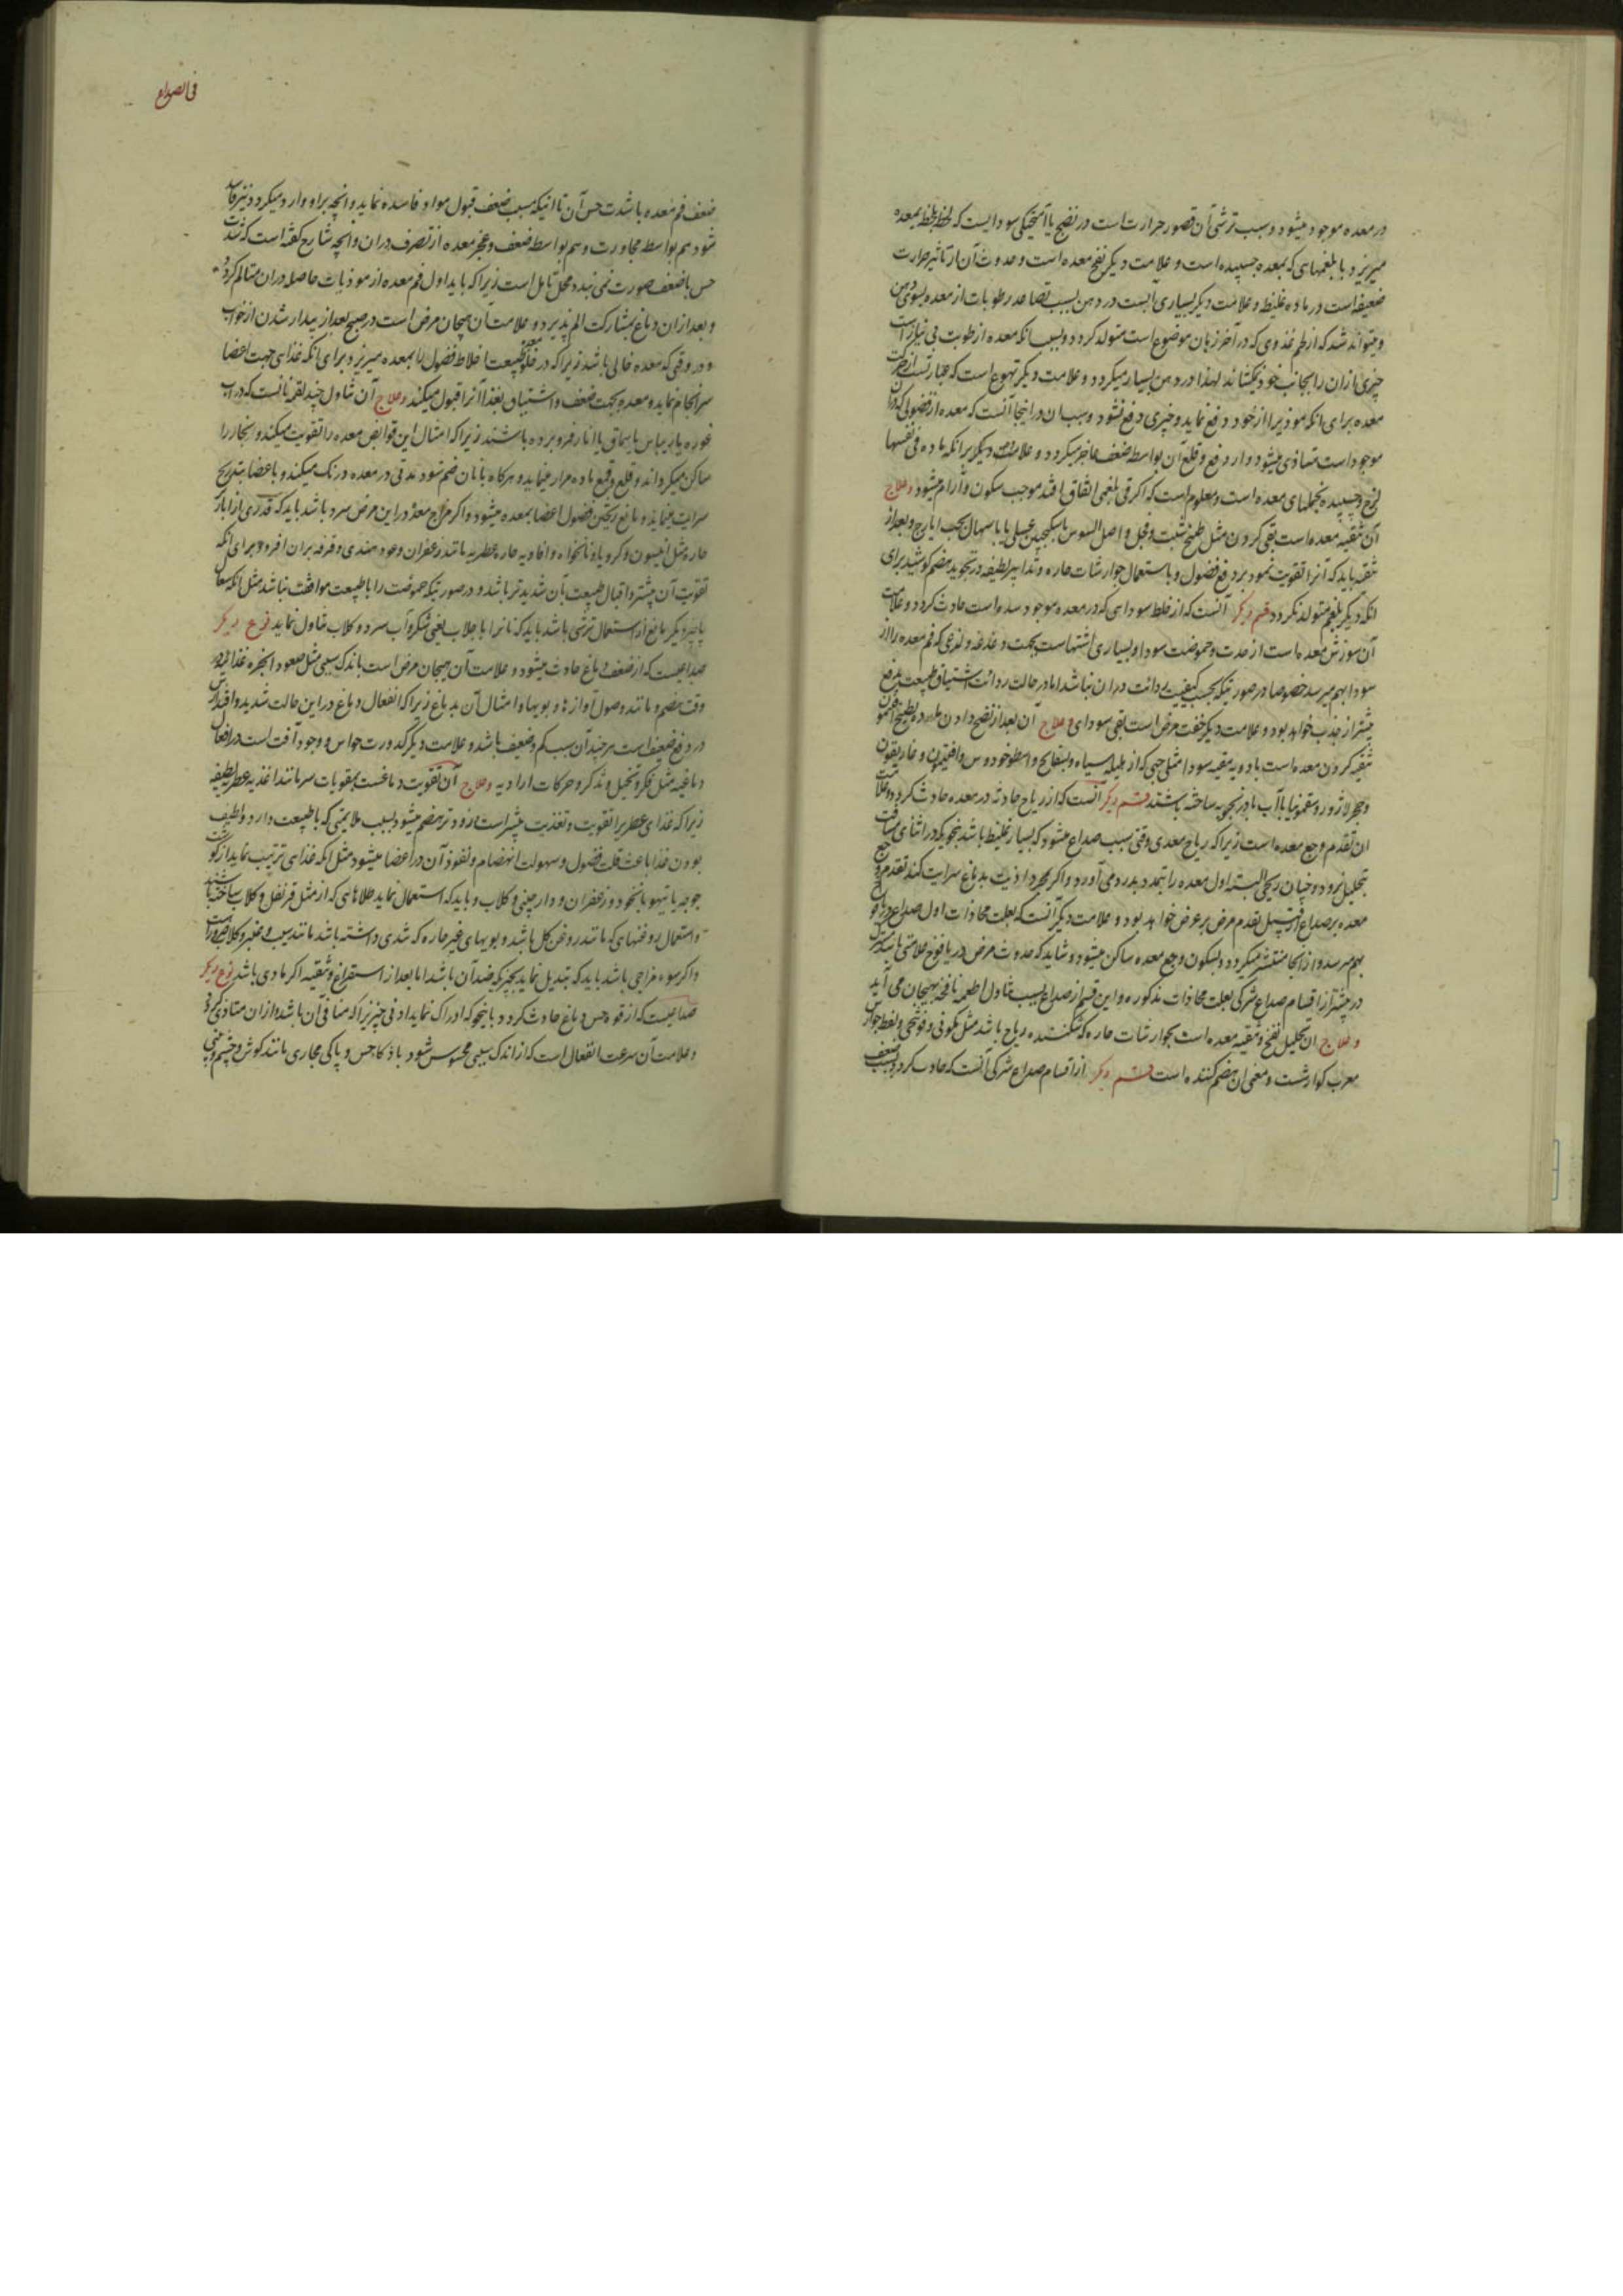 در معده موجود میشود و سبب ترشی آن قصور حرارتست در نضج یا آمیختگی سوداییست که لحظه بلحظه بمعده
میریزد با بلغمهای که بمعده چسپیده است و علامت دیگر نفخ معده است و حدوث آن از تاثیر حرارت
ضعیفه است در ماده غلیظ و علامت دیگر بسیاری آبست در دهن بسبب تصاعد رطوبات از معده بسوی دهن
و میتواند شد که از لحم غذدی که در آخر زبان موضوع است متولد کردد و بسبب انکه معده از رطوبت بی نیاز است
چیزی ازان را بجانب خود نمیکشاند لهذا در دهن بسیار میکردد و علامت دیگر تهوع است که عبارتست از حرکت
معده برای انکه موذیرا از خود دفع نماید و چیزی دفع نشود و سبب ان در اینجا آنست که معده از فضولی که دران
موجود است متاذی میشود و از دفع و قلع آن بواسطه ضعف عاجز میکردد و علامت دیگر برانکه ماده فی نفسها
لزج و چسپیده بخملهای معده است و معلوم است که اکر قی بلغمی اتفاق افتد موجب سکون و آرام میشود و علاج
آن تنقیه معده است بقی کردن مثل طبیخ شبت و فجل و اصل السوس با سکنجبین عسلی یا با سهال بحب ایارج و بعد از
تنقیه باید که آنرا تقویت نمود بر دفع فضول و باستعمال جوارشات حاره و تدابیر لطیفه در تجوید هضم کوشید برای
انکه دیگر بلغم متولد نکردد قسم دیگر آنست که از خلط سودای که در معده موجود شده است حادث کردد و علامت
آن سوزش معده است از حدت و حموضت سودا و بسیاری اشتهاست بجهت دغدغه و لذعی که فم معده را از
سودا بهم میرسد خصوصا در صورتیکه بحسب کیفیت ردائت دران نباشد اما در حالت ردائت اشتیاق طبیعت بدفع
بیشتر از جذب خواهد بود و علامت دیگر خفت مرض است بقی سودای و علاج آن بعد از نضج دادن ماده بطبیخ افتیمون
تنقیه کردن معده است بادویه منقیه سودا مثل حبی که از هلیله سیاه و بسفایج و اسطوخودوس و افتیمون و غاریقون
و حجر لاژورد و سقمونیا با آب بادرنجبویه ساخته باشند قسم دیگر آنست که از ریاح حادثه در معده حادث کردد و علامت
ان تقدم وجع معده است زیرا که ریاح معدی وقتی سبب صداع میشود که بسیار غلیظ باشد بنحویکه در اثنای مسافت
بتحلیل نرود و چنان ریحی البته اول معده را بتمدد بدرد می آورد و اکر بمجرد اذیت بدماغ سرایت کند تقدم وجع
معده بر صداع از قبیل تقدم مرض بر عرض خواهد بود و علامت دیگر آنست که بعلت محاذات اول صداع در یافوخ
بهم میرسد و از انجا منتشر میکردد و بسکون وجع معده ساکن میشود و شاید که حدوث مرض در یافوخ علامتی باشد مشترک
در بیشتر از اقسام صداع شرکی بعلت محاذات مذکوره و این قسم از صداع بسبب تناول اطعمه نافخه بهیجان می آید
و علاج ان تحلیل نفخ و تنقیه معده است بجوارشات حاره که شکننده ریاح باشد مثل کمونی و فوتنجی و لفظ جوارش
معرب کوارشت و معنی ان هضم کننده است قسم دیگر از اقسام صداع شرکی آنست که حادث کردد بسبب ضعف
فی الصداع
ضعف فم معده با شدت حس آن تا انیکه بسبب ضعف قبول مواد فاسده نماید و انچه براو وارد میکردد نیز فاسد
شود هم بواسطه مجاورت و هم بواسطه ضعف و عجز معده از تصرف دران و انچه شارح کفته است که شدت
حس با ضعف صورت نمی بندد محل تامل است زیرا که باید اول فم معده از موذیات حاصله دران متالم کردد
و بعد ازان دماغ بمشارکت الم پذیرد و علامت آن هیجان مرض است در صبح بعد از بیدار شدن از خواب
و در وقتی که معده خالی باشد زیرا که در خلو معده طبیعت اخلاط فضول را بمعده میریزد برای انکه غذای جهت اعضا
سرانجام نماید و معده بجهت ضعف و اشتیاق بغذا آنرا قبول میکند و علاج آن تناول چند لقمه نانست که در آب
غوره یا ریباس یا سماق یا انار فرو برده باشند زیرا که امثال این قوابض معده را تقویت میکند و بخار را
ساکن میکرداند و قلع و قمع ماده مرار مینماید و هرکاه با نان ضم شود مدتی در معده درنک میکند و باعضا بتدریج
سرایت مینماید و مانع ریختن فضول اعضا بمعده میشود و اکر مزاج معده در این مرض سرد باشد باید که قدری از ابازیر
حاره مثل انیسون و کرویا و نانخواه و افاویه حاره عطریه مانند زعفران و عود هندی و قرفه بران افزود برای انکه
تقویت آن بیشتر و اقبال طبیعت بآن شدیدتر باشد و در صورتیکه حموضت را با طبیعت موافقت نباشد مثل انکه سعال
یا چیز دیگر مانع از استعمال ترشی باشد باید که نانرا با جلاب یعنی شکر و آب سرد و کلاب تناول نماید نوع دیگر
صداعیست که از ضعف دماغ حادث میشود و علامت آن هیجان مرض است باندک سببی مثل صعود ابخره غذائیه در
وقت هضم و مانند وصول آوازها و بویها و امثال آن بدماغ زیرا که انفعال دماغ در این حالت شدید و اقتدارش
در دفع ضعیف است هر چند آن سبب کم و ضعیف باشد و علامت دیگر کدورت حواس و وجود آفت است در افعال
دماغیه مثل فکر و تخیل و تذکر و حرکات ارادیه و علاج آن تقویت دماغست بمقویات سر مانند اغذیه عطریه لطیفه
زیرا که غذای عطریرا تقویت و تغذیت بیشتر است و زودتر هضم میشود بسبب ملایمتی که با طبیعت دارد و لطیف
بودن غذا باعث قلت فضول و سهولت انهضام و نفوذ آن در اعضا میشود مثل انکه غذای ترتیب نماید از کوشت
جوجه یا تیهو با نخود و زعفران و دارچینی و کلاب و باید که استعمال نماید طلاهائی که از مثل قرنفل و کلاب ساخته باشند
و استعمال روغنهای که مانند روغن کل باشد و بویهای غیر حاره که شدی داشته باشد مانند سیب و عنبر و کلاب
و اکر سوء مزاجی باشد باید که تبدیل نماید بچیزیکه ضد آن باشد اما بعد از استفراغ و تنقیه اکر مادی باشد نوع دیگر
صداعیست که از قوه حس دماغ حادث کردد باینجو که ادراک نماید ادنی چیزیرا که منافی آن باشد و ازان متاذی کردد
و علامت آن سرعت انفعال است که از اندک سببی محسوس شود با ذکا حس و پاکی مجاری مانند کوش و چشم و بینی